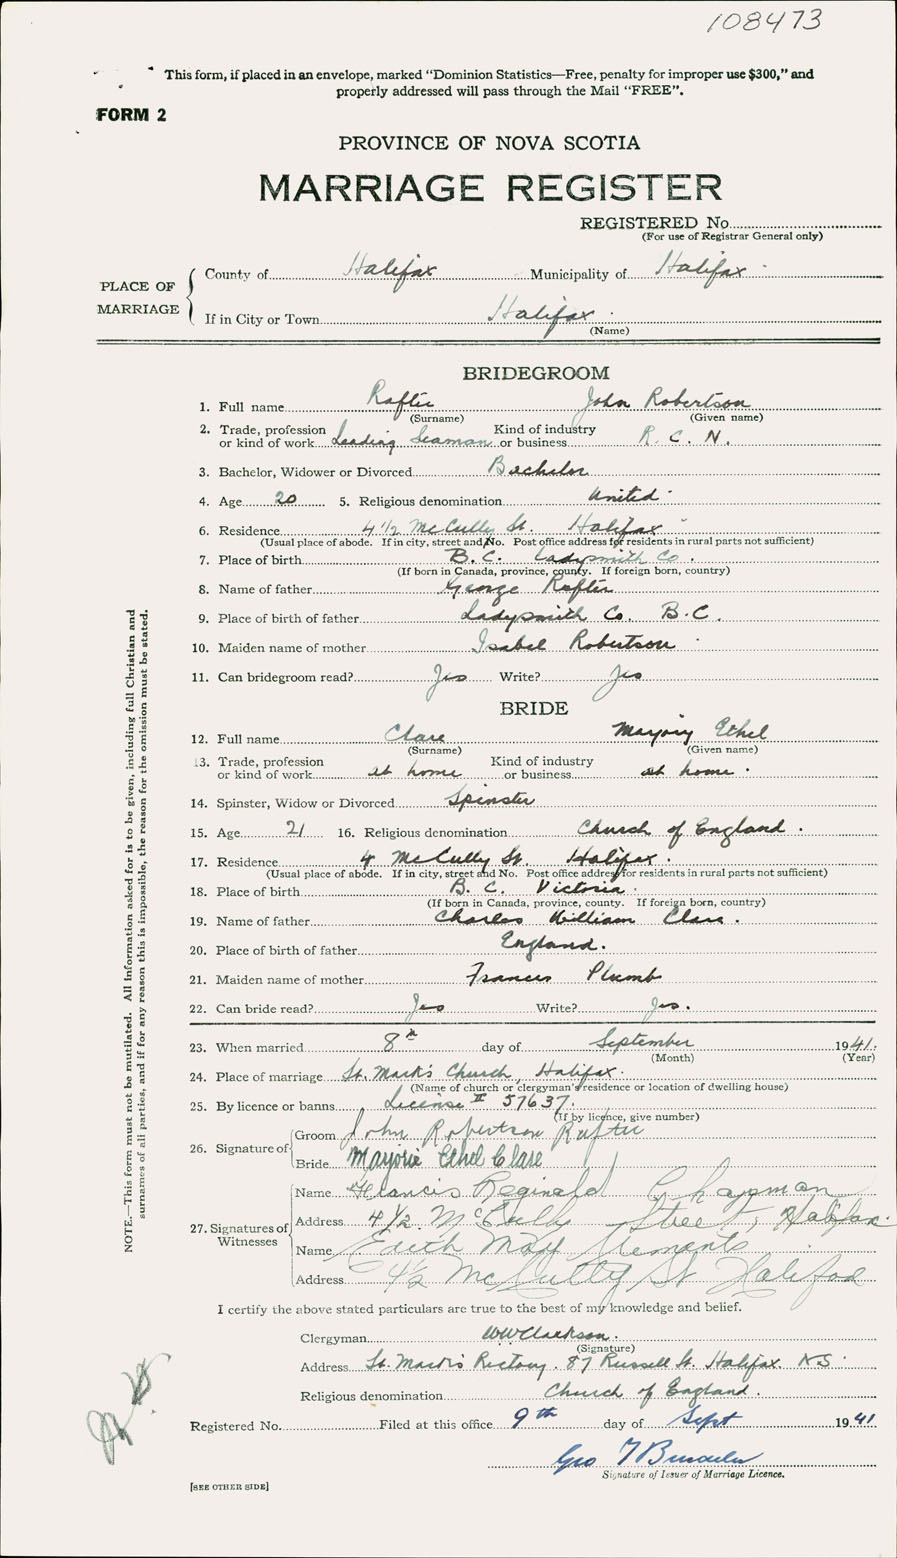 108473
This form, if placed in an envelope, marked "Dominion Statistics—Free, penalty for improper use $300," and
properly addressed will pass through the Mail "FREE".
FORM 2
PROVINCE OF NOVA SCOTIA
MARRIAGE REGISTER
REGISTERED No
(For use of Registrar General only)
PLACE OF MARRIAGE
County of Halifax Municipality of Halifax
If in City or Town Halifax
(Name)
BRIDEGROOM
1. Full name Rafter John Robertson
(Surname) (Given name)
2. Trade, profession or kind of work Leading Seaman Kind of industry or business R. C. N.
3. Bachelor, Widower or Divorced Bachelor
4. Age 20 5. Religious denomination United
6. Residence 4 1/2 McCully St. Halifax
(Usual place of abode. If in city, street and No. Post office address for residents in rural parts not sufficient)
7. Place of birth B. C. Ladysmith Co.
(If born in Canada, province, county. If foreign born, country)
8. Name of father George Rafter
9. Place of birth of father Ladysmith Co. B.C.
10. Maiden name of mother Isabel Robertson
11. Can bridegroom read? Yes Write? Yes
BRIDE
12. Full name Clare Marjory Ethel
(Surname) (Given name)
13. Trade, profession or kind of work at home Kind of industry or business at home.
14. Spinster, Widow or Divorced Spinster
15. Age 21 16. Religious denomination Church of England.
17. Residence 4 McCully St. Halifax.
(Usual place of abode. If in city, street and No. Post office address for residents in rural parts not sufficient)
18. Place of birth B. C. Victoria.
(If born in Canada, province, county. If foreign born, country)
19. Name of father Charles William Clare.
20. Place of birth of father England.
21. Maiden name of mother Frances Plumb
22. Can bride read? Yes Write? Yes.
23. When married 8th day of September 1941.
(Month) (Year)
24. Place of marriage St. Mark's Church, Halifax.
(Name of church or clergyman's residence or location of dwelling house)
25. By licence or banns License # 57637.
(If by licence, give number)
26. Signature of Groom John Robertson Rafter
Bride Marjorie Ethel Clare
27. Signatures of Witnesses
Name Francis Reginald Chapman
Address 4 1/2 McCully Street, Halifax.
Name Edith May
Address 4 1/2 McCully St Halifax
I certify the above stated particulars are true to the best of my knowledge and belief.
Clergyman WW Clarkson.
(Signature)
Address St. Mark's Rectory. 87 Russell St. Halifax NS.
Religious denomination Church of England.
Registered No. Filed at this office 9th day of Sept 1941
Geo
Signature of Issuer of Marriage Licence.
[SEE OTHER SIDE]
NOTE.—This form must not be mutilated. All information asked for is to be given, including full Christian and
surnames of all parties, and if for any reason this is impossible, the reason for the omission must be stated.